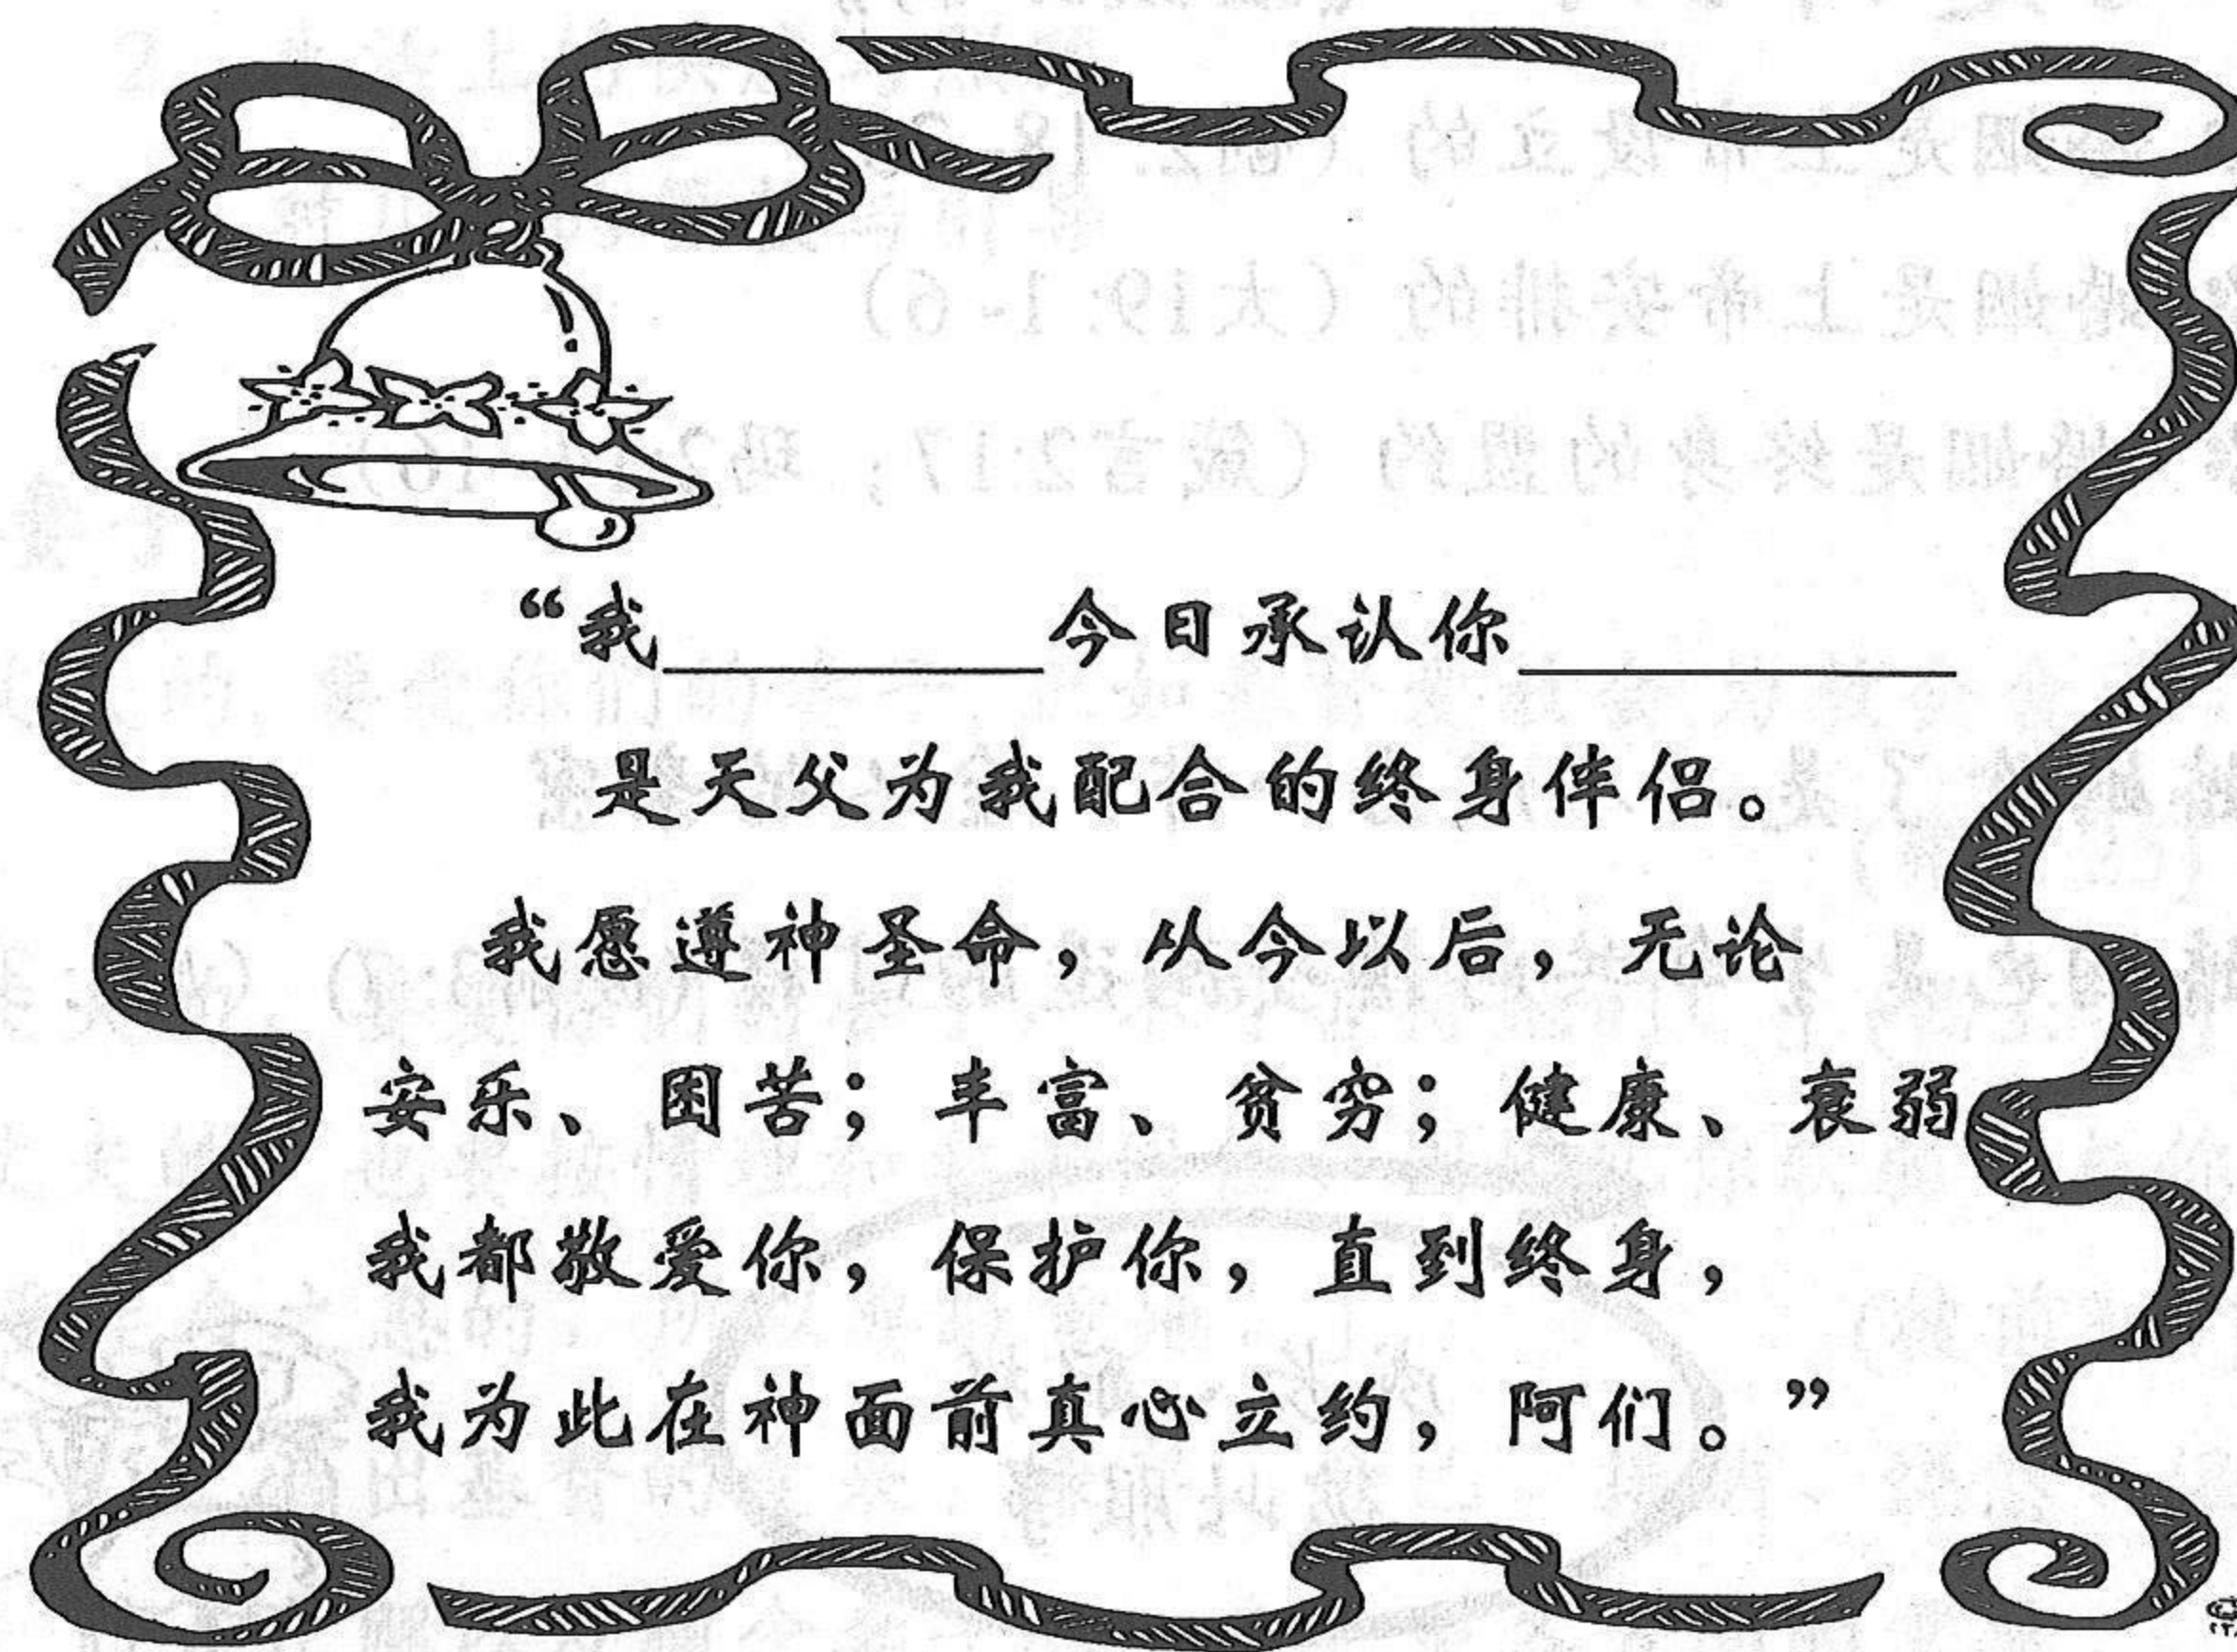 “我__________今日承认你__________
是天父为我配合的终身伴侣。
我愿遵神圣命，从今以后，无论
安乐、困苦；丰富、贫穷；健康、衰弱
我都敬爱你，保护你，直到终身，
我为此在神面前真心立约，阿们。”